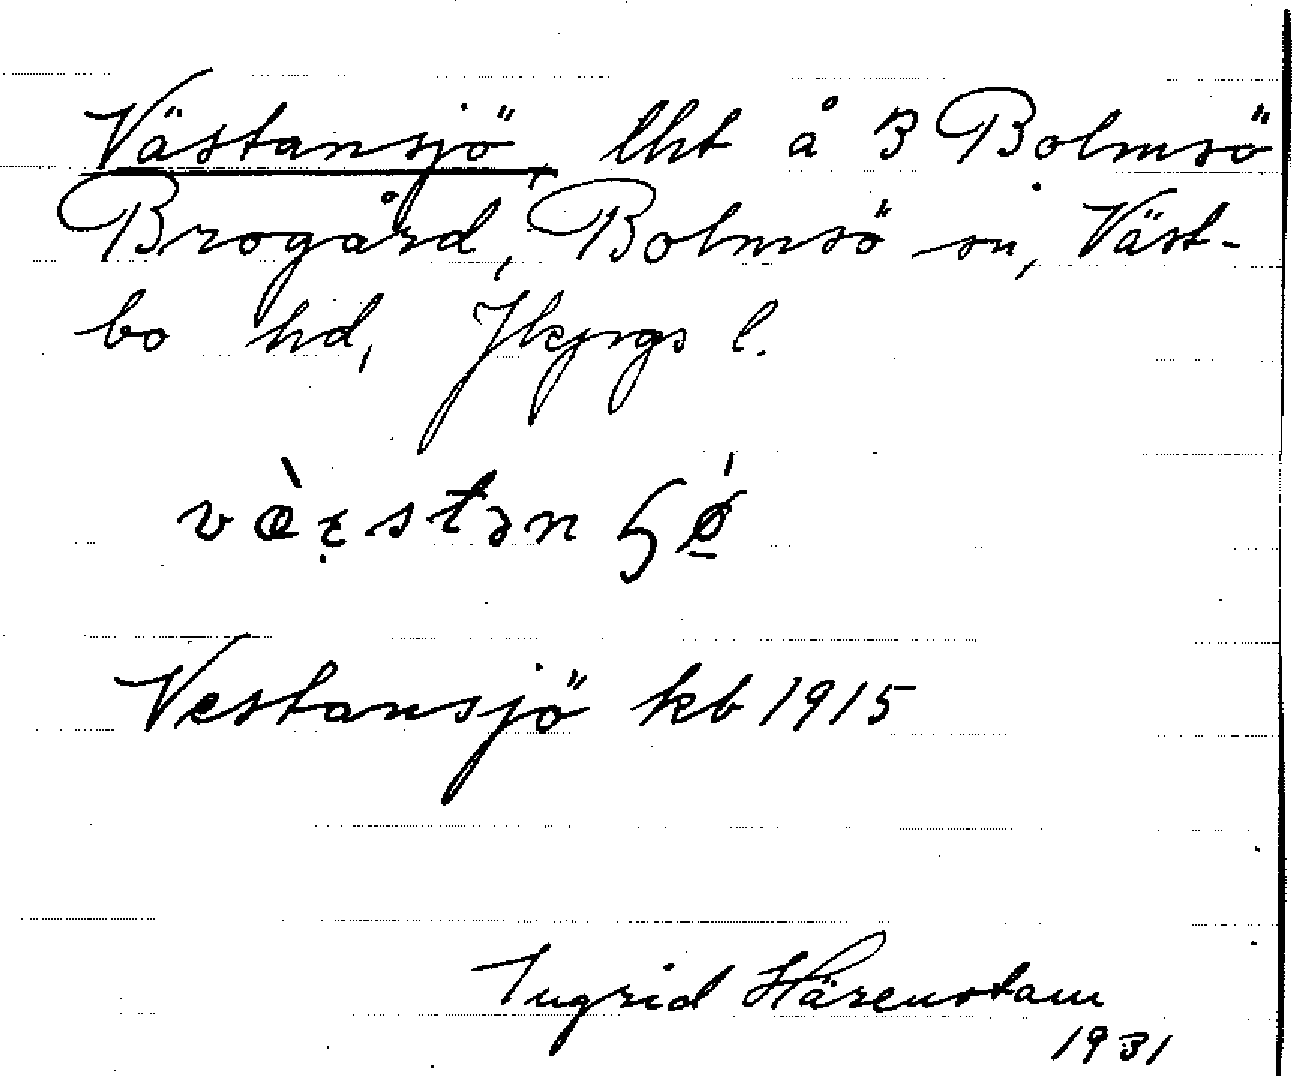 Västansjö, lht å 3 Bolmsö
Brogård, Bolmsö sn, Väst-
bo hd, Jkpgs l.
Vestansjö kb 1915
Ingrid Härenstam
1931